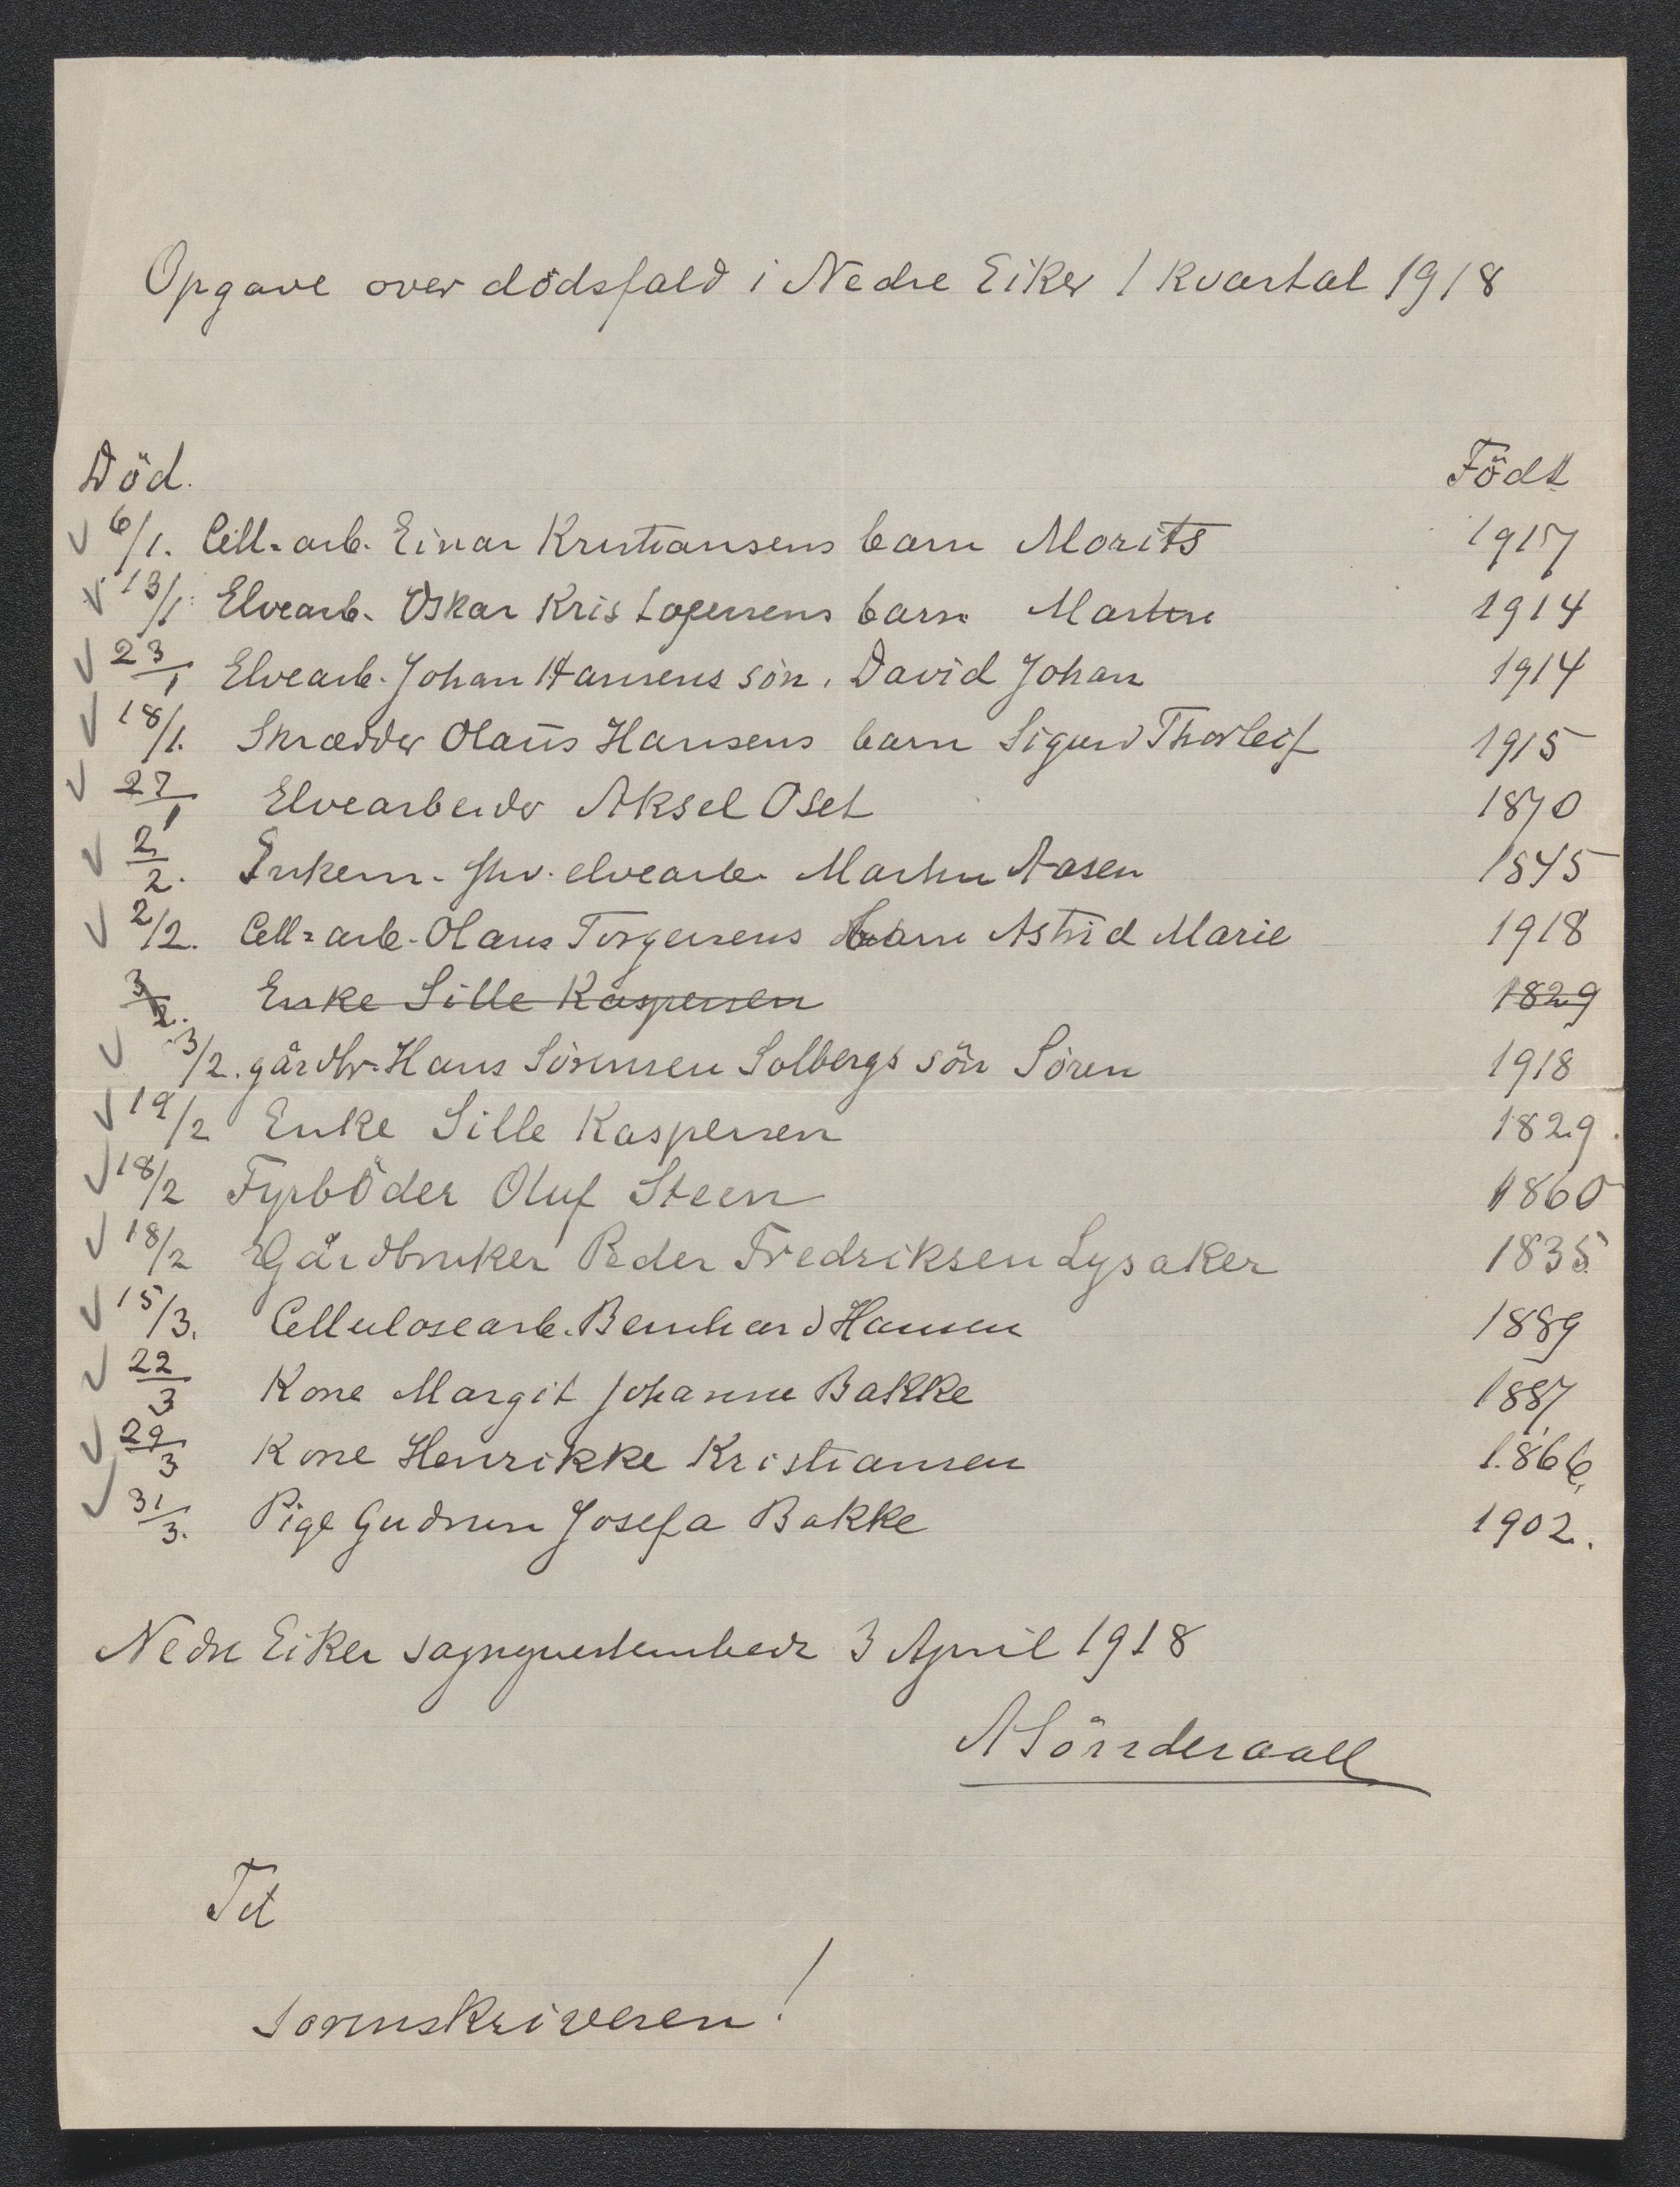 Opgave over dödsfald i Nedre Eiker 1 kvartal 1918
Död. Födt
6/1. Cell-arb. Einar Kristiansens barn Morits 1917
13/1 Elvearb. Oskar Kristofersens barn Martin 1914
23/1 Elvearb. Johan Hansens sön. David Johan 1914
18/1. Skrædder Olaus Hansens barn Sigurd Thorleif 1915
27/1 Elvearbeider Aksel Oset 1870
2/2. Enkem. fhv. elvearb. Martin Aasen 1845
2/2. Cell-arb. Olaus Torgersens barn Astrid Marie 1918
3/2. Enke Sille Kaspersen 1829
3/2. gårdbr. Hans Sörensen Solbergs sön Sören 1918
12/2 Enke Sille Kaspersen 1829.
18/2 Fyrböder Oluf Steen 1860
18/2 Gårdbruker Peder Fredriksen Lysaker 1835
15/3. Cellulosearb. Bernhard Hansen 1889
22/3 Kone Margit Johanne Bakke 1887
29/3 Kone Henrikke Kristiansen 1866
31/3. Pige Gudrun Josefa Bakke 1902.
Nedre Eiker 3 April 1918
A Sönderaall
Til
sorenskriveren!